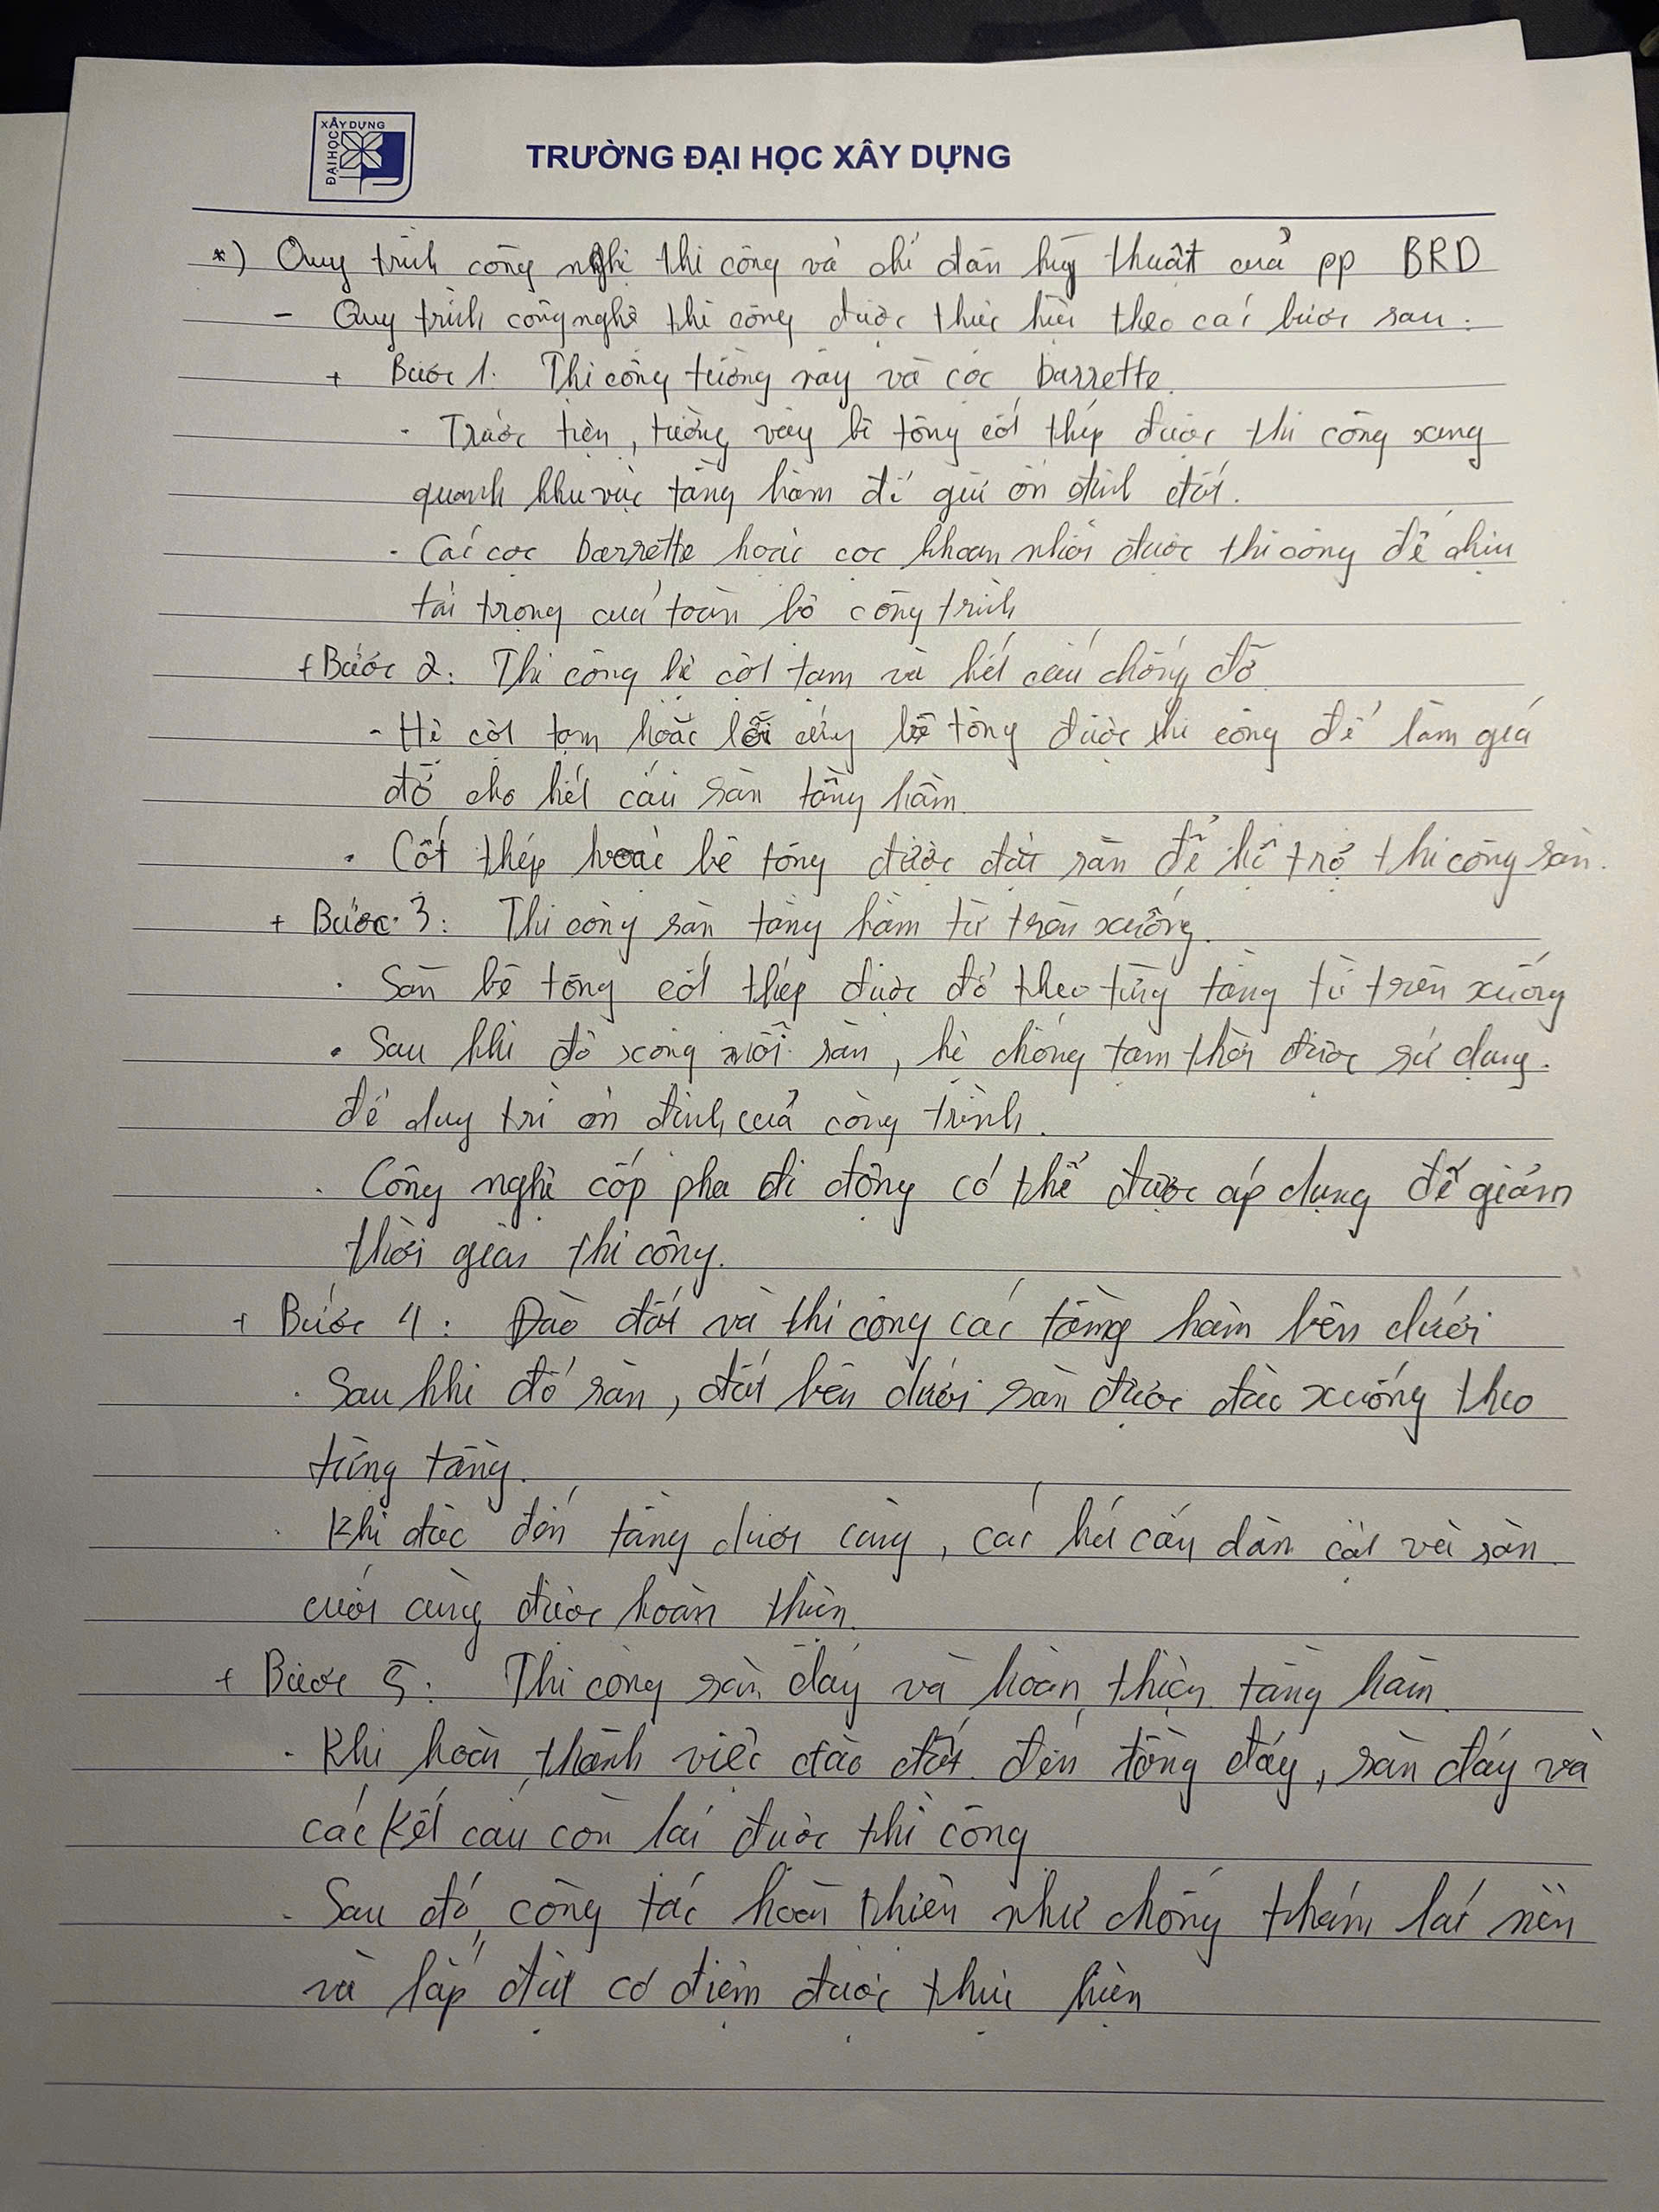 XÂY DỰNG
ĐẠI HỌC
TRƯỜNG ĐẠI HỌC XÂY DỰNG
*) Quy trình công nghệ thi công và chỉ dẫn kỹ thuật của pp BRD
- Quy trình công nghệ thi công được thực hiện theo các bước sau:
+ Bước 1. Thi công tường vây và cọc barrette.
. Trước tiên, tường vây bê tông cốt thép được thi công xung
quanh khu vực tầng hầm để giữ ổn định đất.
. Các cọc barrette hoặc cọc khoan nhồi được thi công để chịu
tải trọng của toàn bộ công trình
+ Bước 2: Thi công hệ cột tạm và kết cấu chống đỡ
- Hệ cột tạm hoặc lõi cứng bê tông được thi công để làm giá
đỡ cho kết cấu sàn tầng hầm
. Cốt thép hoặc bê tông được đặt sẵn để hỗ trợ thi công sàn.
+ Bước 3: Thi công sàn tầng hầm từ trên xuống.
. Sàn bê tông cốt thép được đổ theo từng tầng từ trên xuống
. Sau khi đổ xong mỗi sàn, hệ chống tạm thời được sử dụng.
để duy trì ổn định của công trình.
. Công nghệ cốp pha di động có thể được áp dụng để giảm
thời gian thi công.
+ Bước 4: Đào đất và thi công các tầng hầm bên dưới
. Sau khi đổ sàn, đất bên dưới sàn được đào xuống theo
từng tầng.
. Khi đào đến tầng dưới cùng, các kết cấu dầm cột và sàn
cuối cùng được hoàn thiện.
+ Bước 5: Thi công sàn đáy và hoàn thiện tầng hầm
. Khi hoàn thành việc đào đất đến tầng đáy, sàn đáy và
các kết cấu còn lại được thi công
. Sau đó, công tác hoàn thiện như chống thấm lát nền
và lắp đặt cơ điện được thực hiện